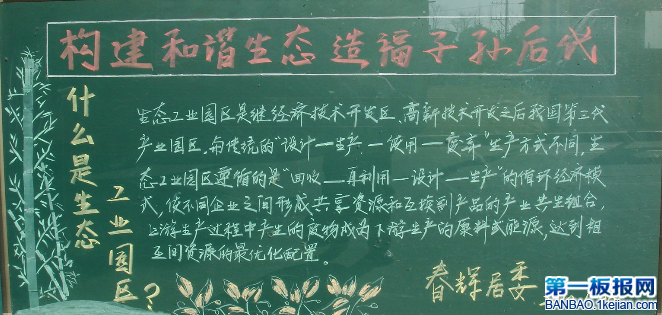 构建和谐生态造福子孙后代
什么是生态
工业园区?
生态工业园区是继经济技术开发区、高新技术开发之后我国第三代
产业园区。与传统的"设计—生产—使用—废弃"生产方式不同,生
态工业园区遵循的是"回收—再利用—设计—生产"的循环经济模
式,使不同企业之间形成共享资源和互换副产品的产业共生组合,
上游生产过程中产生的废物成为下游生产的原料或能源,达到相
互间资源的最优化配置。
春辉居委
第一板报网
BANBAO.1kejian.com